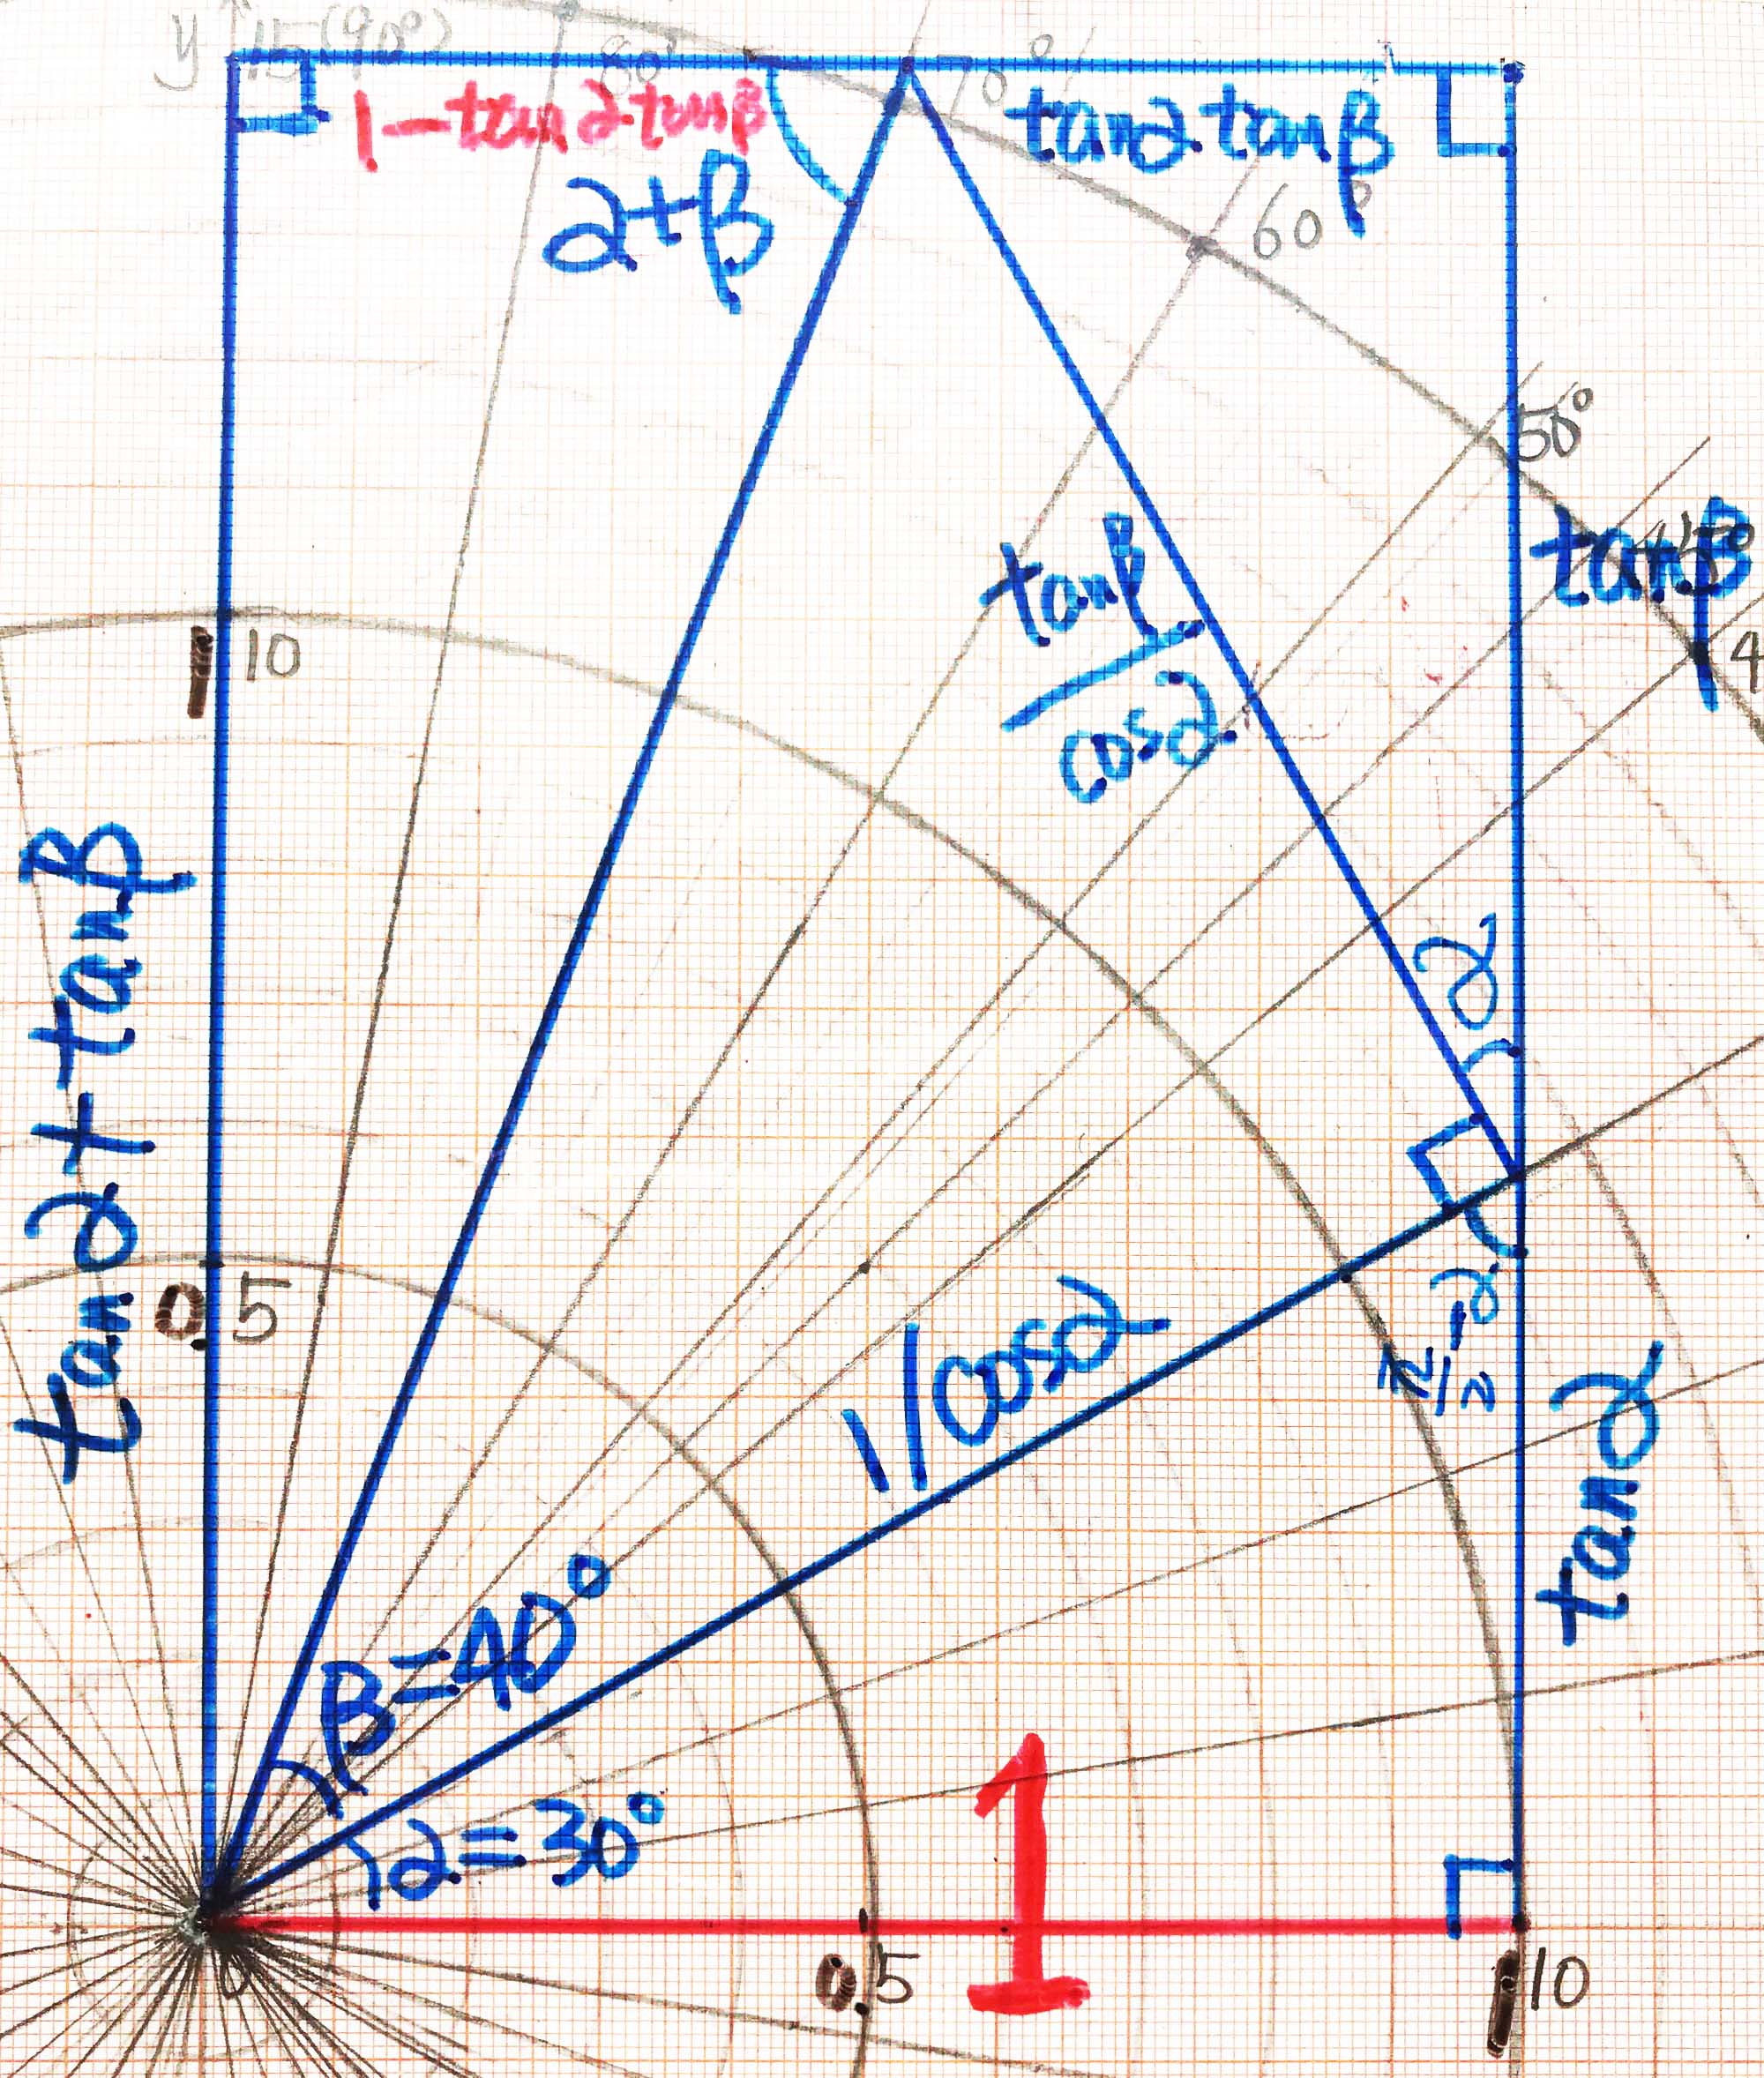 y 15(90°)
80°
70°
1-tanαtanβ
tanα·tanβ
α+β
60°
50°
tanβ
45°
4
tanβ
cosα
1 10
tanα+tanβ
α
0.5
π/2-α
1/cosα
tanα
β=40°
α=30°
1
0
0.5
1 10